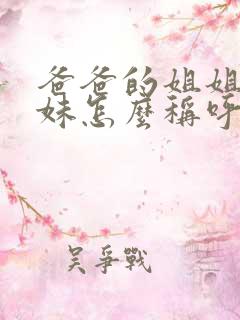 爸爸的姐姐
妹怎麼稱呼
吴爭戰